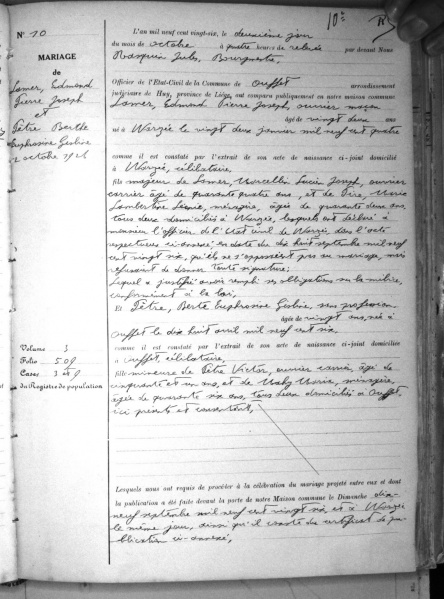 10e
N° 10
MARIAGE
de
Lamer, Edmond
Pierre Joseph
et
Pêtre Berthe
Euphrosine Gesline
2 octobre 1926
L'an mil neuf cent vingt-six, le deuxième jour
du mois de octobre à quatre heures de relevée
par devant Nous
Jules, Bourgmestre,
Officier de l'État-Civil de la Commune de Ouffet arrondissement
judiciaire de Huy, province de Liége, ont comparu publiquement en notre maison commune
Lamer, Edmond Pierre Joseph, ouvrier maçon
âgé de vingt deux ans
né à Warzée le vingt deux janvier mil neuf cent quatre
comme il est constaté par l'extrait de son acte de naissance ci-joint domicilié
à Warzée, célibataire,
fils majeur de Lamer, Marcellin Lucien Joseph, ouvrier
carrier âgé de quarante quatre ans, et de Marie
Lambertine Léonie, ménagère, âgée de quarante deux ans,
tous deux domiciliés à Warzée, lesquels ont déclaré à
monsieur l'officier de l'Etat civil de Warzée, dans l'acte
respectueux ci-annexé, en date du dix huit septembre mil neuf
cent vingt six, qu'ils ne s'opposaient pas au mariage, mais
refusaient de donner toute signature;
Lequel a justifié avoir rempli ses obligations sur la milice,
conformément à la loi,
Et Pêtre, Berthe Euphrosine Gesline, sans profession
âgée de vingt ans, née à
Ouffet le dix huit avril mil neuf cent six,
comme il est constaté par l'extrait de son acte de naissance ci-joint domiciliée
à Ouffet, célibataire,
fille mineure de Pêtre Victor, ouvrier carrier, âgé de
cinquante et un ans, et de Marie, ménagère,
âgée de quarante six ans, tous deux domiciliés à Ouffet,
ici présents et consentant,
Volume 3
Folio 509
Cases
du Registre de population
Lesquels nous ont requis de procéder à la célébration du mariage projeté entre eux et dont
la publication a été faite devant la porte de notre Maison commune le Dimanche dix-
neuf septembre mil neuf cent vingt six, et à Warzée
le même jour, ainsi qu'il conste du certificat de pu-
blication ci-annexé,